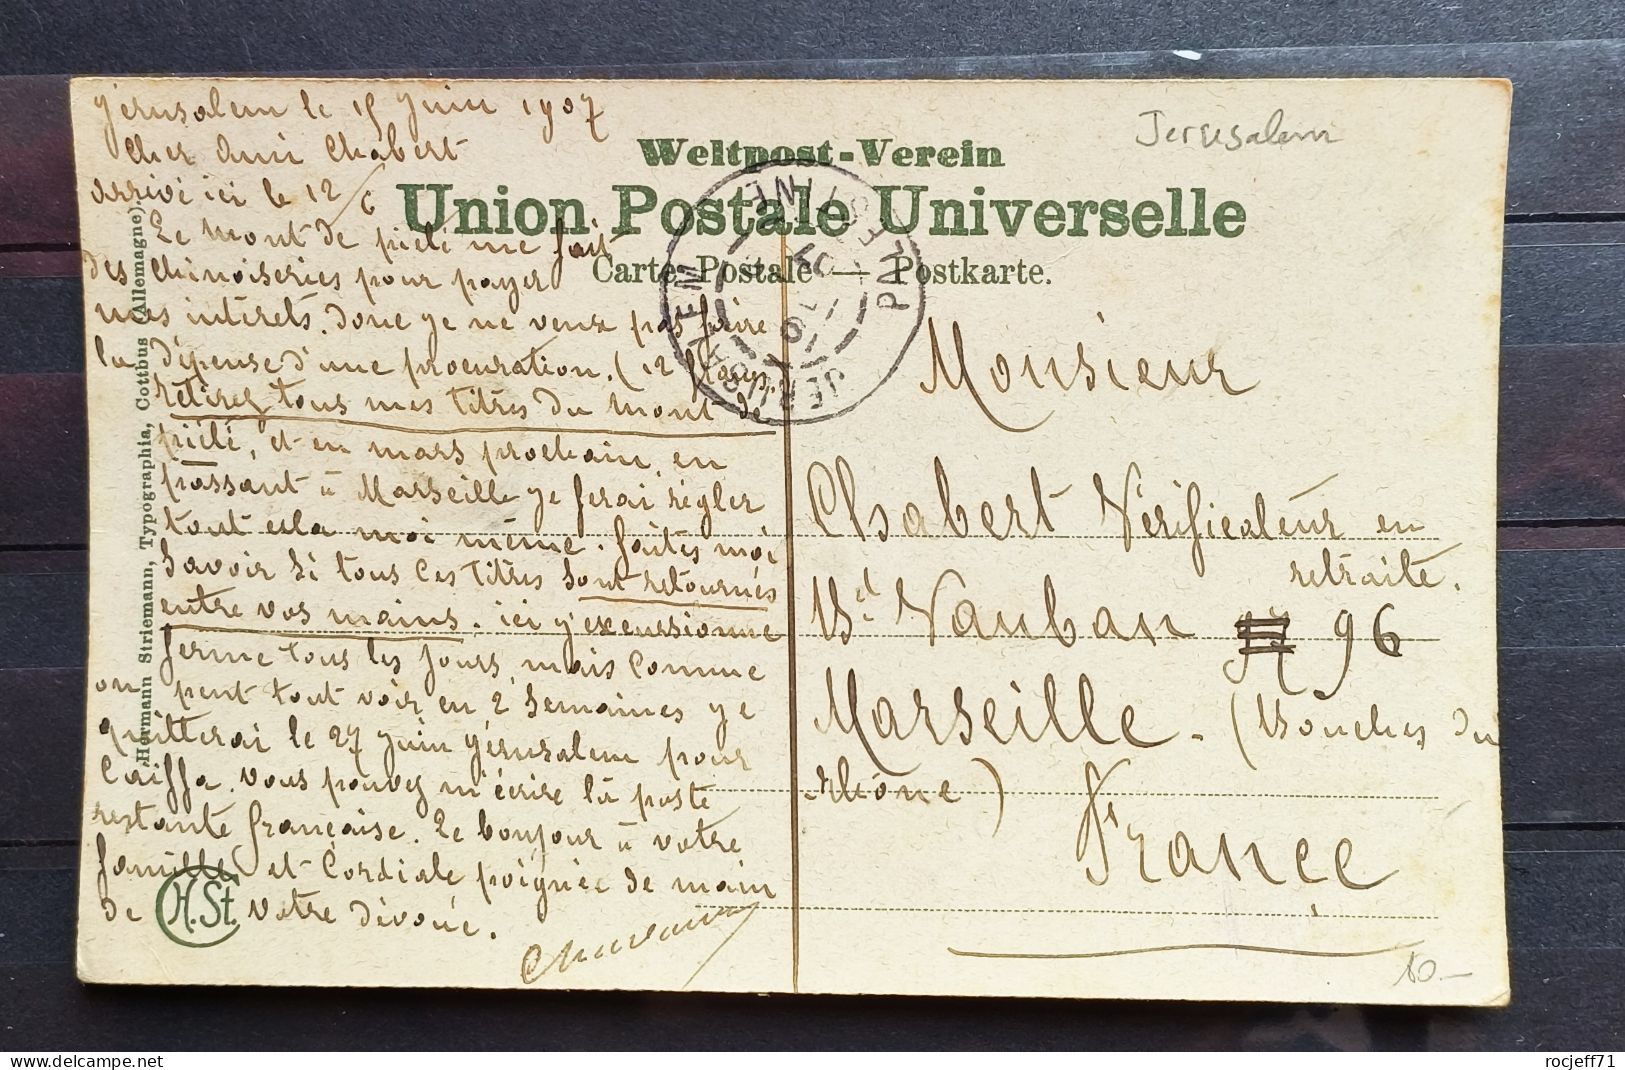 Jérusalem le 15 Juin 1907
Cher Ami Chabert
arrivé ici le 12/6
Le Mont de piété me fait
des chinoiseries pour payer
mes intérêts. Donc je ne veux pas faire
la dépense d'une procuration. (12 francs)
Retirez tous mes titres du Mont de
piété, et en mars prochain, en
passant à Marseille je ferai régler
tout cela moi même. faites moi
savoir si tous ces titres sont retournés
entre vos mains. ici j'excursionne
ferme tous les jours, mais comme
on peut tout voir en 2 semaines je
quitterai le 27 juin Jérusalem pour
Caiffa. vous pouvez m'écrire là poste
restante française. Le bonjour à votre
famille et Cordiale poignée de main
de votre dévoué.
H.St.
Hermann Striemann, Typographia, Cottbus (Allemagne).
Jerusalem
Weltpost-Verein
Union Postale Universelle
Carte Postale — Postkarte.
JERUSALEM
PALESTINE
Monsieur
Chabert Vérificateur en
retraite.
Bd Vauban 96
Marseille. (Bouches du
Rhône)
France
10.—
rocjeff71